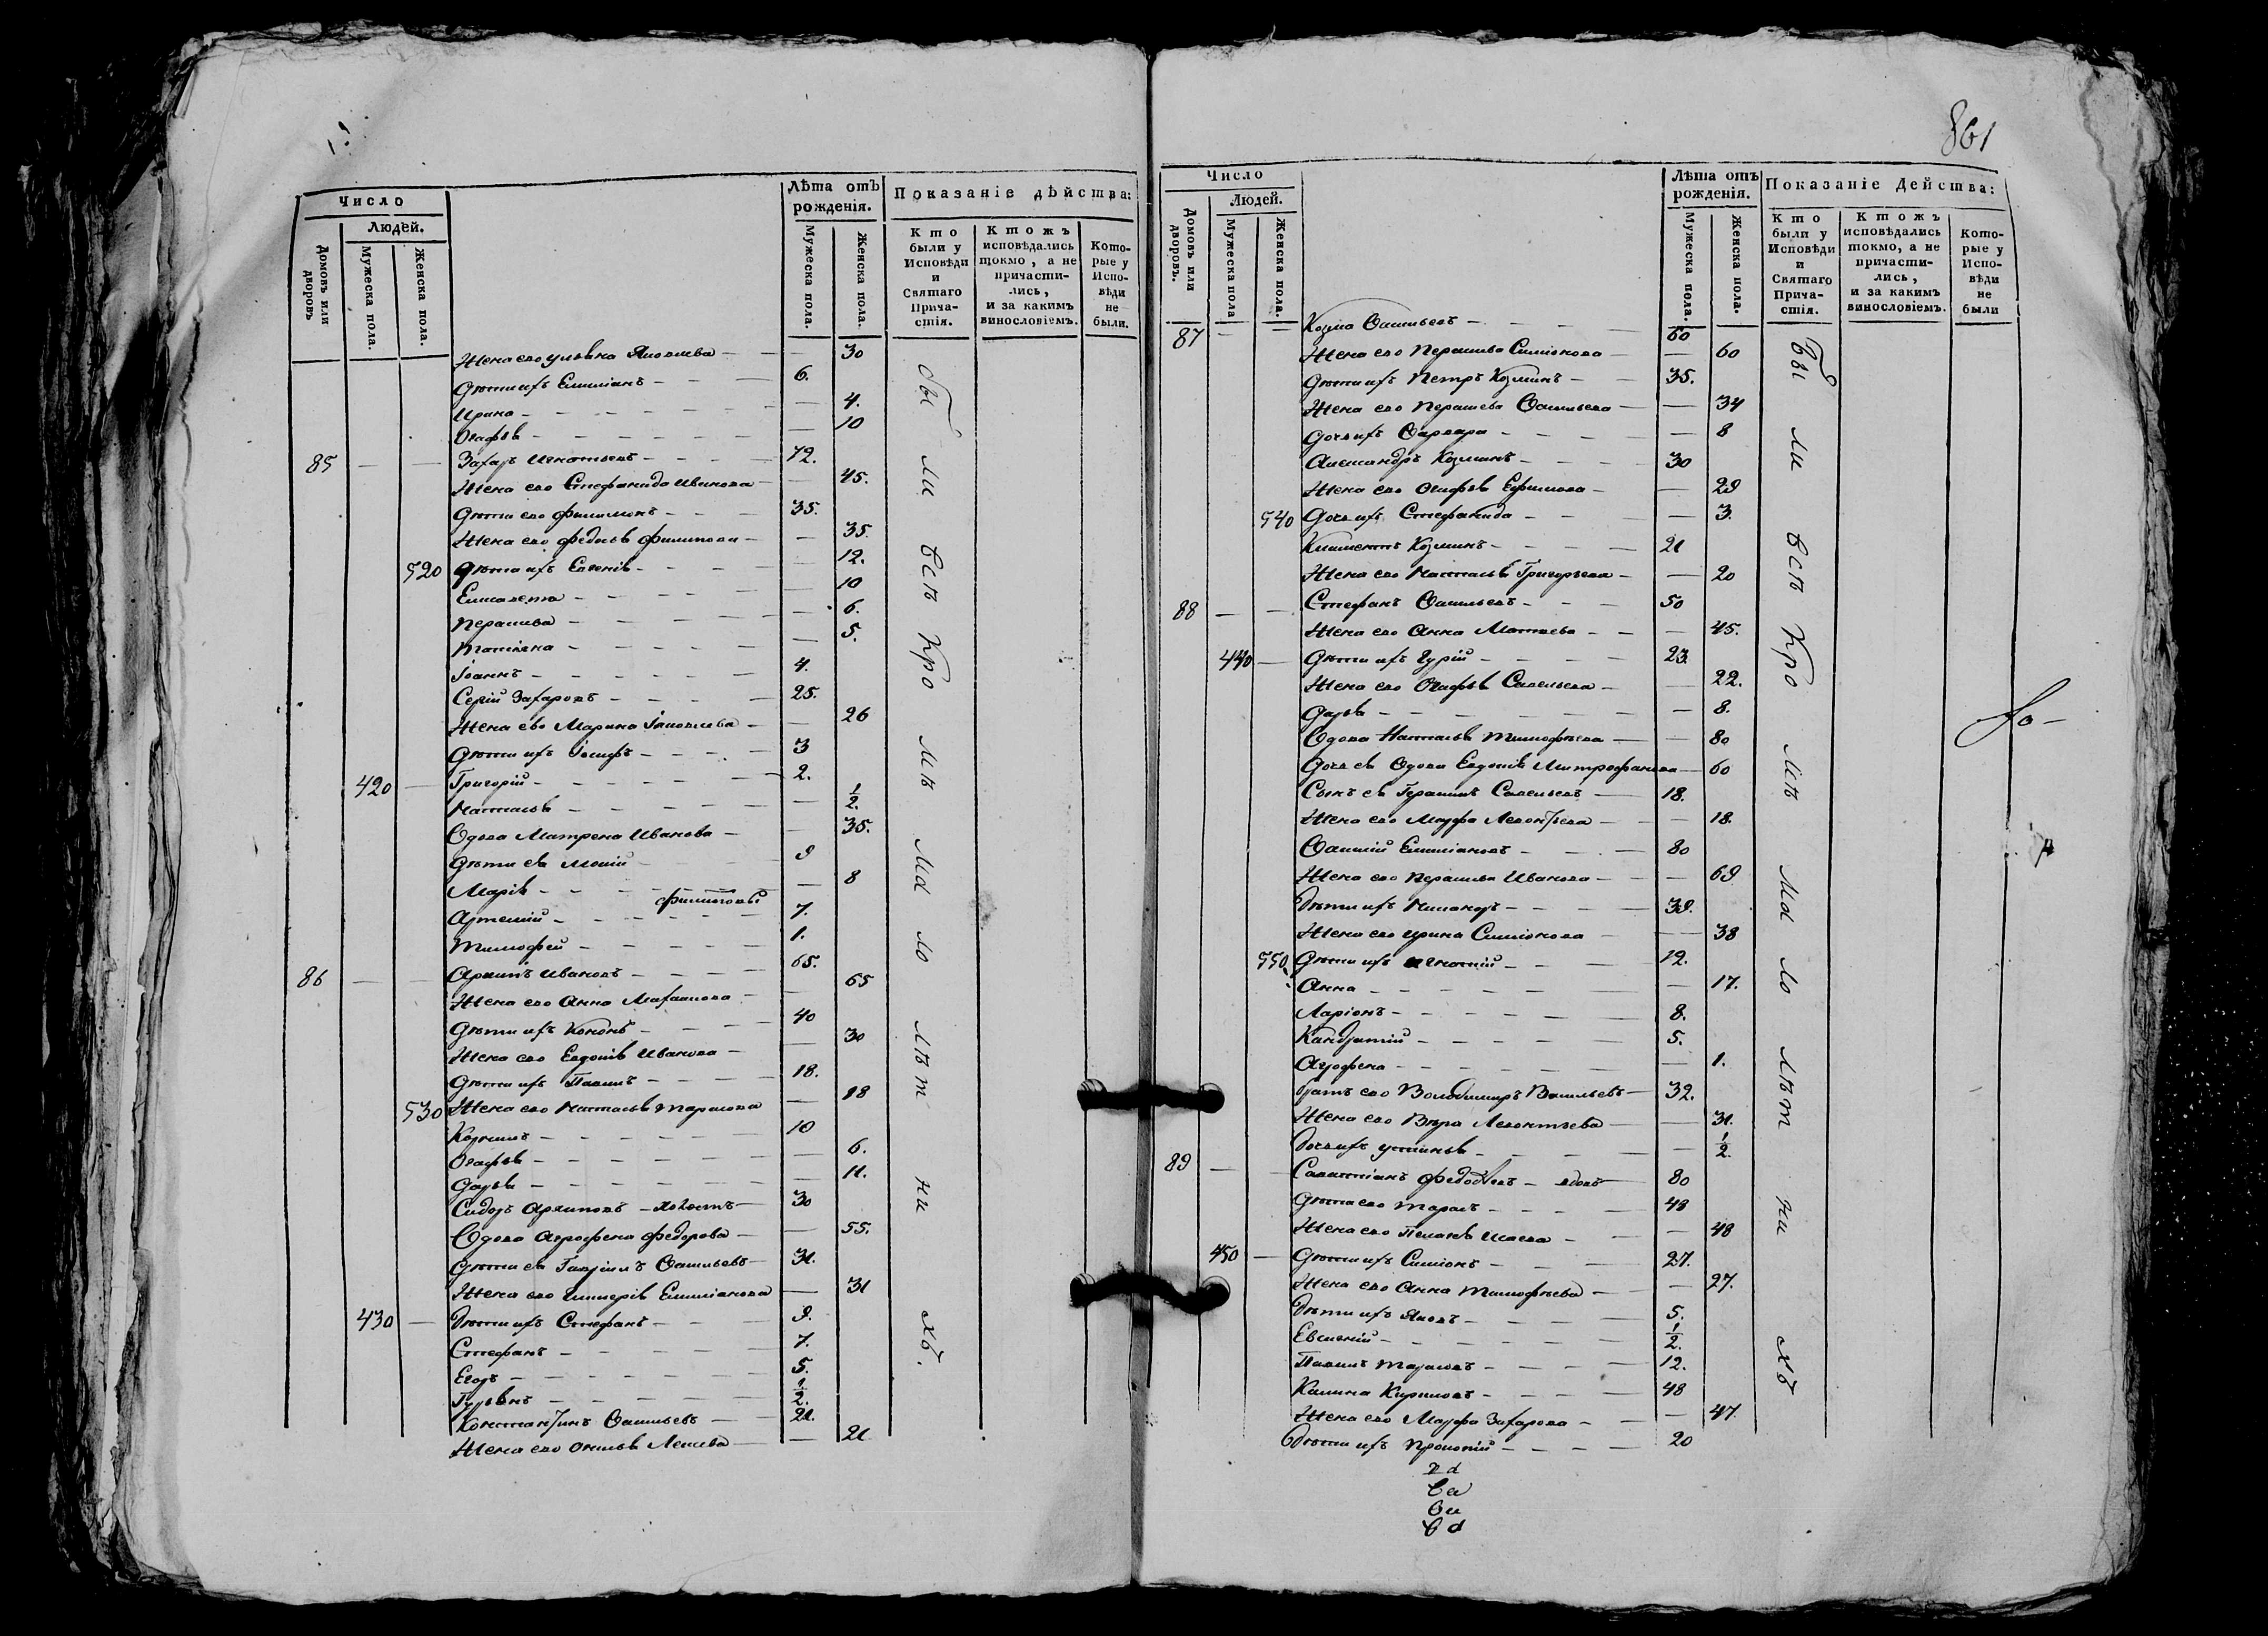 861
Число
Людей.
Домовъ или дворовъ
Мужеска пола.
Женска пола.
Лѣта отъ рожденія.
Мужеска пола.
Женска пола.
Показаніе дѣйства:
Кто были у Исповѣди и Святаго Прича-стія.
Ктожъ исповѣдались токмо, а не причасти-лись, и за какимъ винословіемъ.
Кото-рые у Испо-вѣди не были.
Жена его Ульяна Яковлева — 30
Дѣти ихъ Емиліанъ 6.
Ирина — 4.
Агафья — 10
85 — — Захаръ Игнатьевъ 72.
Жена его Стефанида Иванова — 45.
Дѣти его Филимонъ 35.
Жена его Федосья Филипова — 35.
520 Дѣти ихъ Евгенія — 12.
Елисавета — 10
Парасква — 6.
Татіяна — 5.
Іоаннъ 4.
Сергій Захаровъ 25.
Жена его Марина Іаковлева — 26
Дѣти ихъ Іосифъ 3
420 — Григорій 2.
Наталья — 1/2.
Вдова Матрена Иванова — 35.
Дѣти ея 9
Марія — 8
Филиповы
Артемій 7.
Тимофей 1.
86 — — Архипъ Ивановъ 65.
Жена его Анна — 65
Дѣти ихъ Кононъ 40
Жена его Евдокія Иванова — 30
Дѣти ихъ Павелъ 18.
530 Жена его Наталья Тарасова — 18
Корнилъ 10
Агафья — 6.
Дарья — 11.
Сидоръ Архиповъ — холостъ 30
Вдова Агрофена Федорова — 55.
Дѣти ея Гавріилъ Васильевъ 31.
Жена его Гликерія Емиліанова — 31
430 — Дѣти ихъ Стефанъ 9.
Стефанъ 7.
Егоръ 5.
Гурьянъ 1/2.
Константинъ Васильевъ 21.
Жена его — 21
Бы ли всѣ кро мѣ ма ло лѣт ни хъ.
Число
Людей.
Домовъ или дворовъ.
Мужеска пола
Женска пола.
Лѣта отъ рожденія.
Мужеска пола.
Женска пола.
Показаніе Действа:
Кто были у Исповѣди и Святаго Прича-стія.
Ктожъ исповѣдались токмо, а не причасти-лись, и за какимъ винословіемъ.
Кото-рые у Испо-вѣди не были
87 — — Козма Васильевъ 60
Жена его Парасква Симіонова — 60
Дѣти ихъ Петръ Козминъ 35.
Жена его Парасква Васильева — 34
Дочь ихъ Варвара — 8
Александръ Козминъ 30
Жена его Агафья Ефимова — 29
540 Дочь ихъ Стефанида — 3.
Климентъ Козминъ 21
Жена его Наталья Григорьева — 20
88 — — Стефанъ Васильевъ 50
Жена его Анна Матвева — 45.
440 — Дѣти ихъ Гурій 23.
Жена его Агафья Савельева — 22.
Дарья — 8.
Вдова Наталья Тимофѣева — 80
Дочь ея вдова Евдокія Митрофанова — 60
Сынъ ея Герасимъ Савельевъ 18.
Жена его Марфа Левонтьева — 18.
Василій Емиліановъ 80
Жена его Парасква Иванова — 69
Дѣти ихъ Никаноръ 39.
Жена его Ирина Симіонова — 38
550 Дѣти ихъ Игнатій 12.
Анна — 17.
Ларіонъ 8.
Кандратій 5.
Агрофена — 1.
Братъ его Володимиръ Васильевъ 32.
Жена его Вѣра Левонтьева — 31.
Дочь ихъ Устинья — 1/2.
89 — — Савастіанъ — вдовъ 80
Дѣти его Тарасъ 48
Жена его Пелагѣя Исаева — 48
450 — Дѣти ихъ Симіонъ 27.
Жена его Анна Тимофѣева — 27.
Дѣти ихъ Яковъ 5.
Евгеній 1/2.
Павелъ Тарасовъ 12.
Калина Кириловъ 48
Жена его Марфа Захарова — 47.
Дѣти ихъ Прокопій 20
Бы ли всѣ кро мѣ ма ло лѣт ни хъ